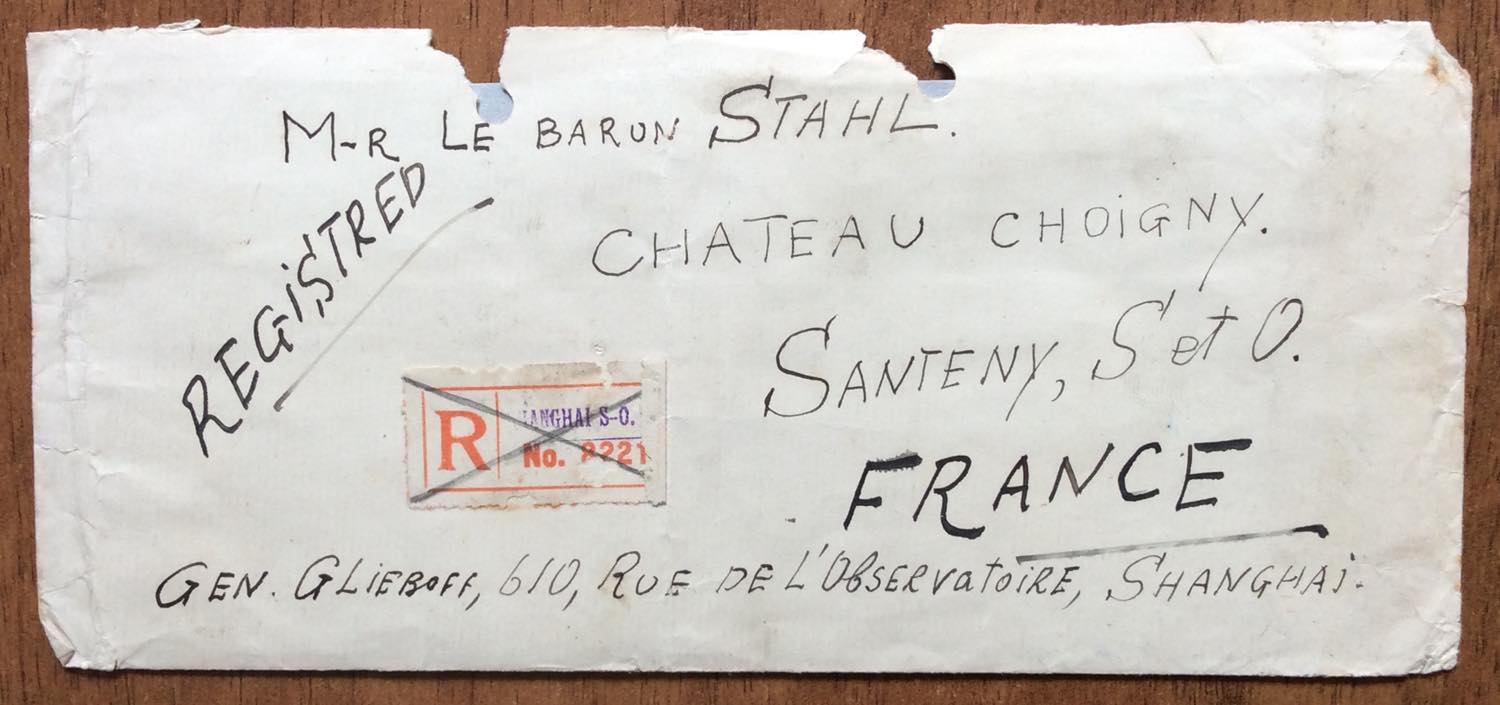 M-R LE BARON STAHL.
REGISTRED
CHATEAU CHOIGNY.
SANTENY, S et O.
R
ANGHAI S-O.
No. 2221
FRANCE
GEN. GLIEBOFF, 610, RUE DE L'OBSERVATOIRE, SHANGHAI.